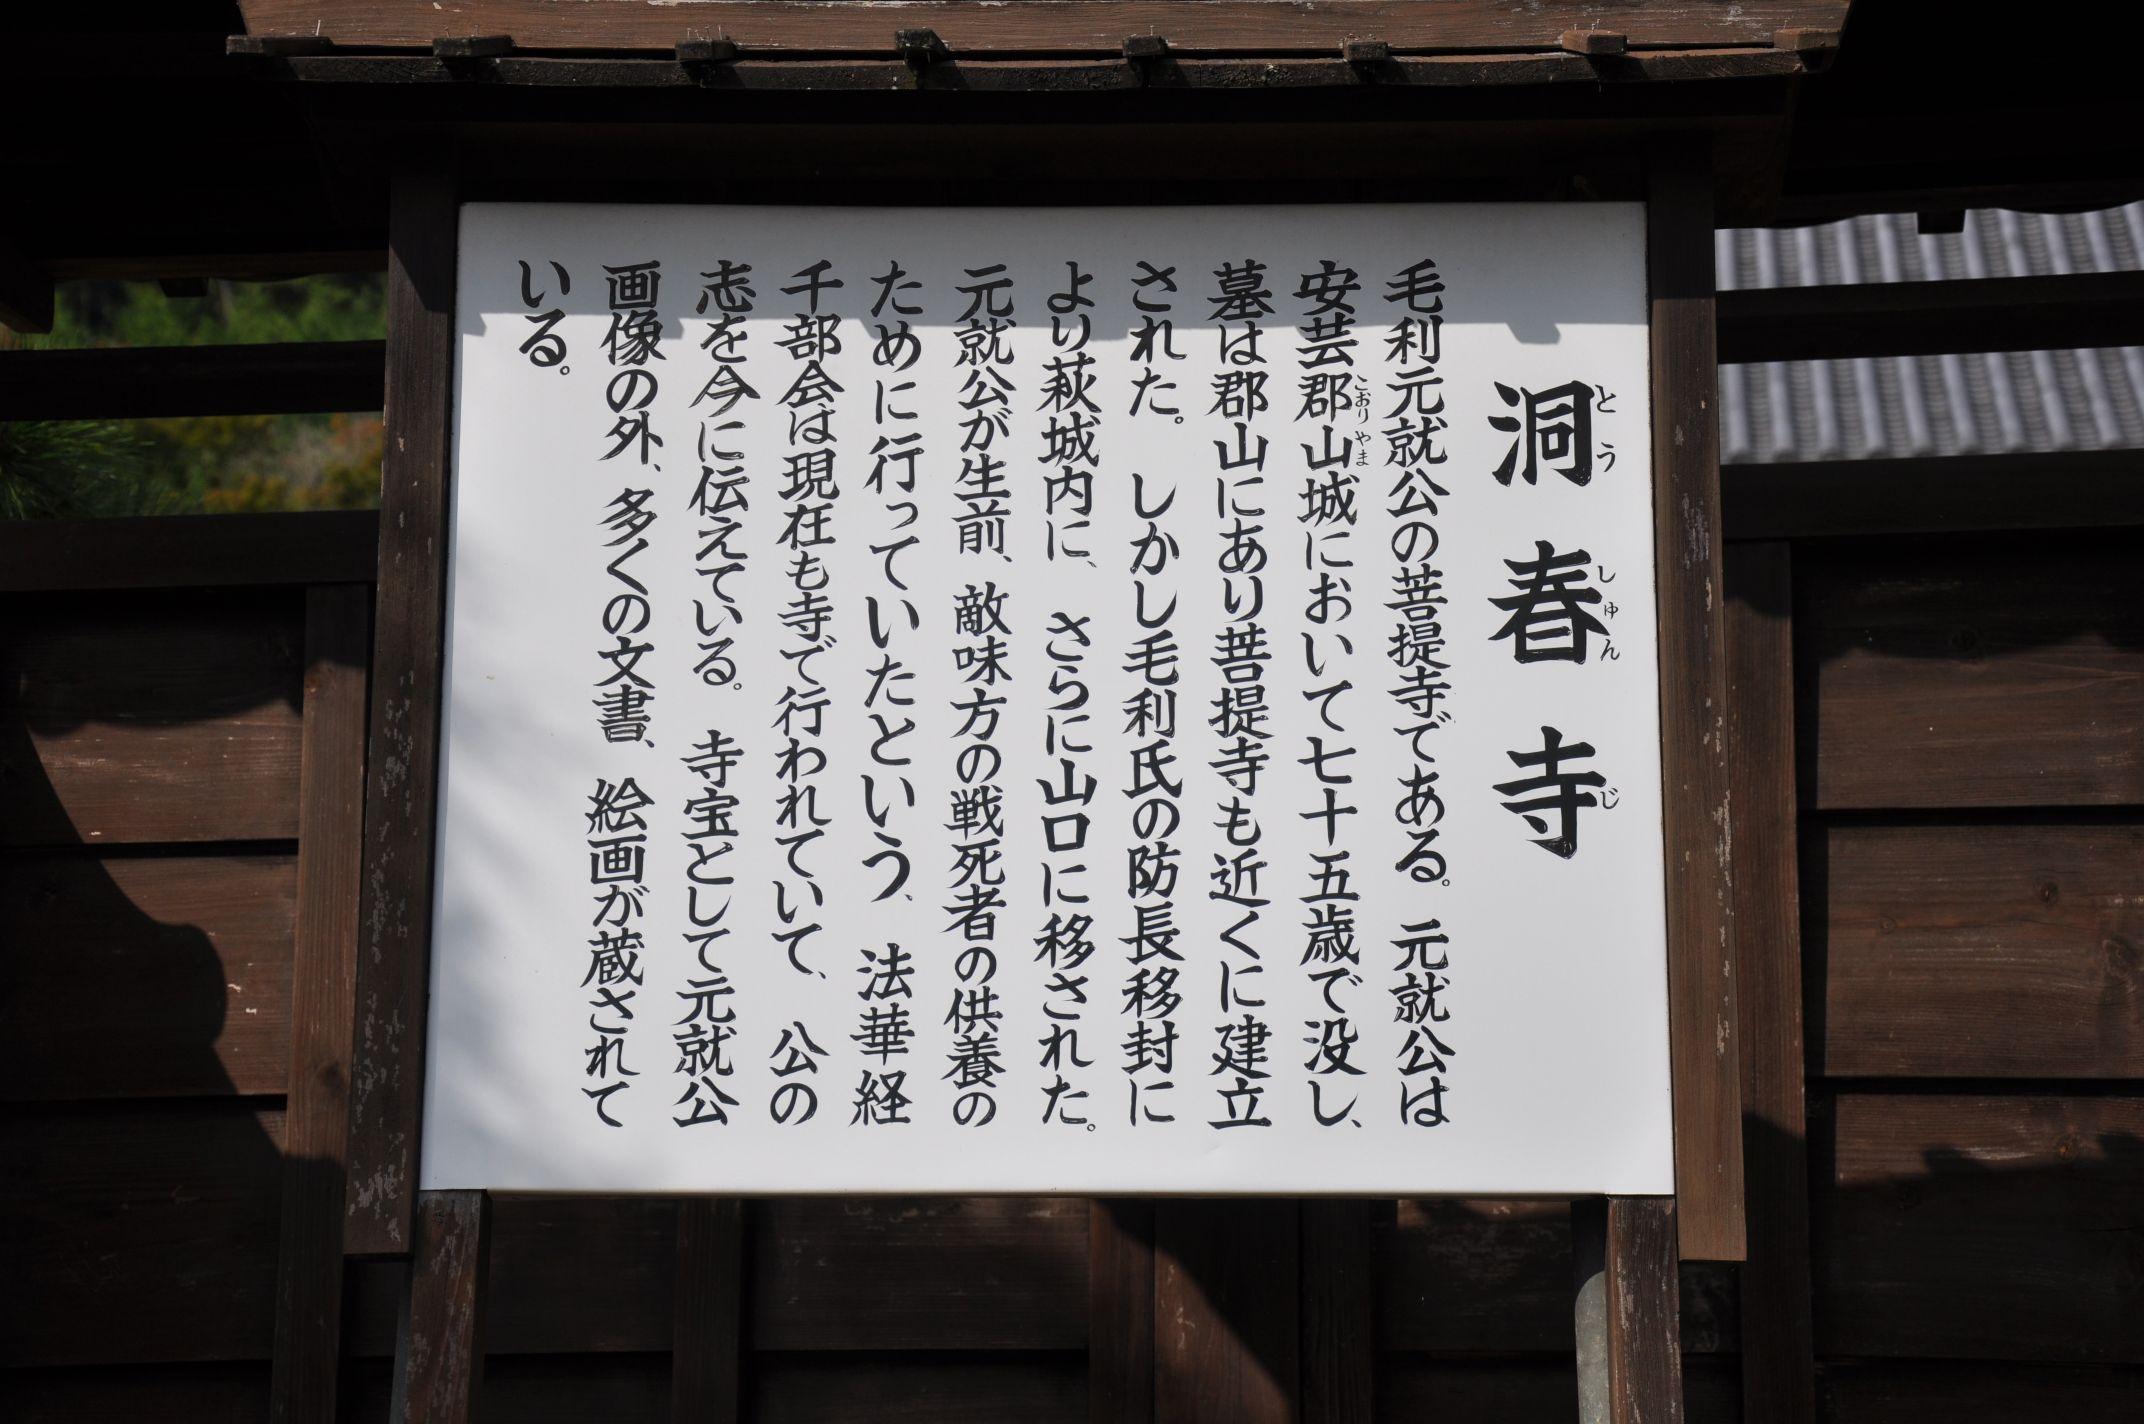 洞春寺
とうしゅんじ
毛利元就公の菩提寺である。元就公は
安芸郡山城において七十五歳で没し、
こおりやま
墓は郡山にあり菩提寺も近くに建立
された。しかし毛利氏の防長移封に
より萩城内に、さらに山口に移された。
元就公が生前、敵味方の戦死者の供養の
ために行っていたという、法華経
千部会は現在も寺で行われていて、公の
志を今に伝えている。寺宝として元就公
画像の外、多くの文書、絵画が蔵されて
いる。